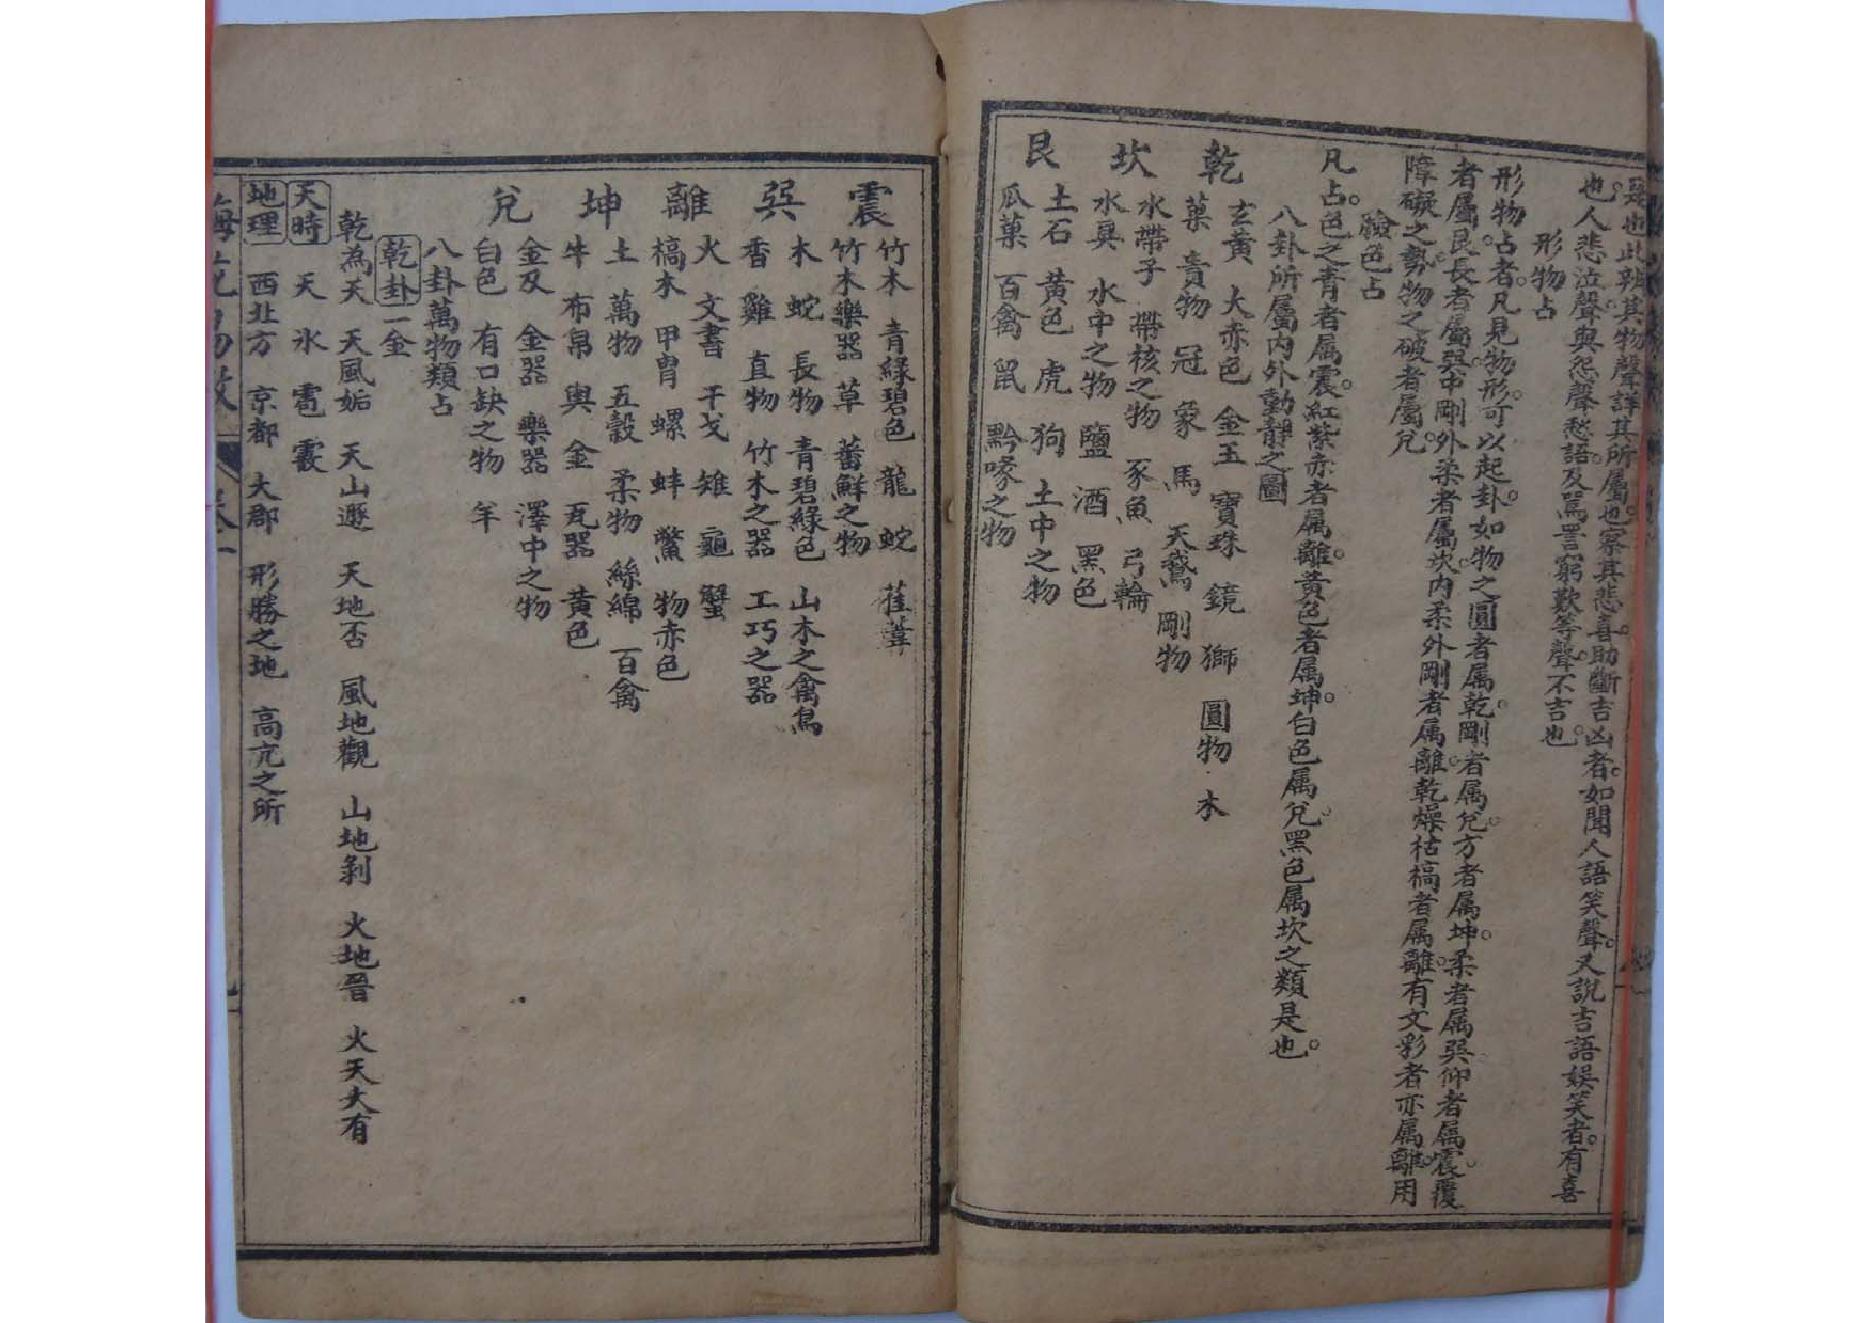 是也此辨其物聲詳其所屬也察其悲喜助斷吉凶者如聞人語笑聲又說吉語娛笑者有喜
也人悲泣聲與怨聲愁語及罵詈窮歎等聲不吉也
形物占
形物占者凡見物形可以起卦如物之圓者属乾剛者属兌方者属坤柔者属巽仰者属震覆
者屬艮長者屬巽中剛外柔者屬坎內柔外剛者属離乾燥枯槁者属離有文彩者亦属離用
障礙之勢物之破者屬兌
驗色占
凡占色之青者属震紅紫赤者属離黄色者属坤白色属兌黑色属坎之類是也
八卦所屬內外動静之圖
乾 玄黄 大赤色 金玉 寶珠 鏡 獅 圓物 木
菓 貴物 冠 象 馬 天鵞 剛物
坎 水帶子 帶核之物 豕魚 弓輪
水具 水中之物 鹽 酒 黑色
艮 土石 黄色 虎 狗 土中之物
瓜菓 百禽 鼠 黔喙之物
震 竹木 青綠碧色 龍 蛇 萑葦
竹木樂器 草 蕃鮮之物
巽 木 蛇 長物 青碧綠色 山木之禽鳥
香 雞 直物 竹木之器 工巧之器
離 火 文書 干戈 雉 龜 蟹
槁木 甲胄 螺 蚌 鱉 物赤色
坤 土 萬物 五穀 柔物 絲綿 百禽
牛 布帛 輿 金 瓦器 黄色
兌 金及 金器 樂器 澤中之物
白色 有口缺之物 羊
八卦萬物類占
乾卦一金
乾為天 天風姤 天山遯 天地否 風地觀 山地剝 火地晉 火天大有
天時 天 氷 雹 霰
地理 西北方 京都 大郡 形勝之地 高亢之所
梅花易數 卷一